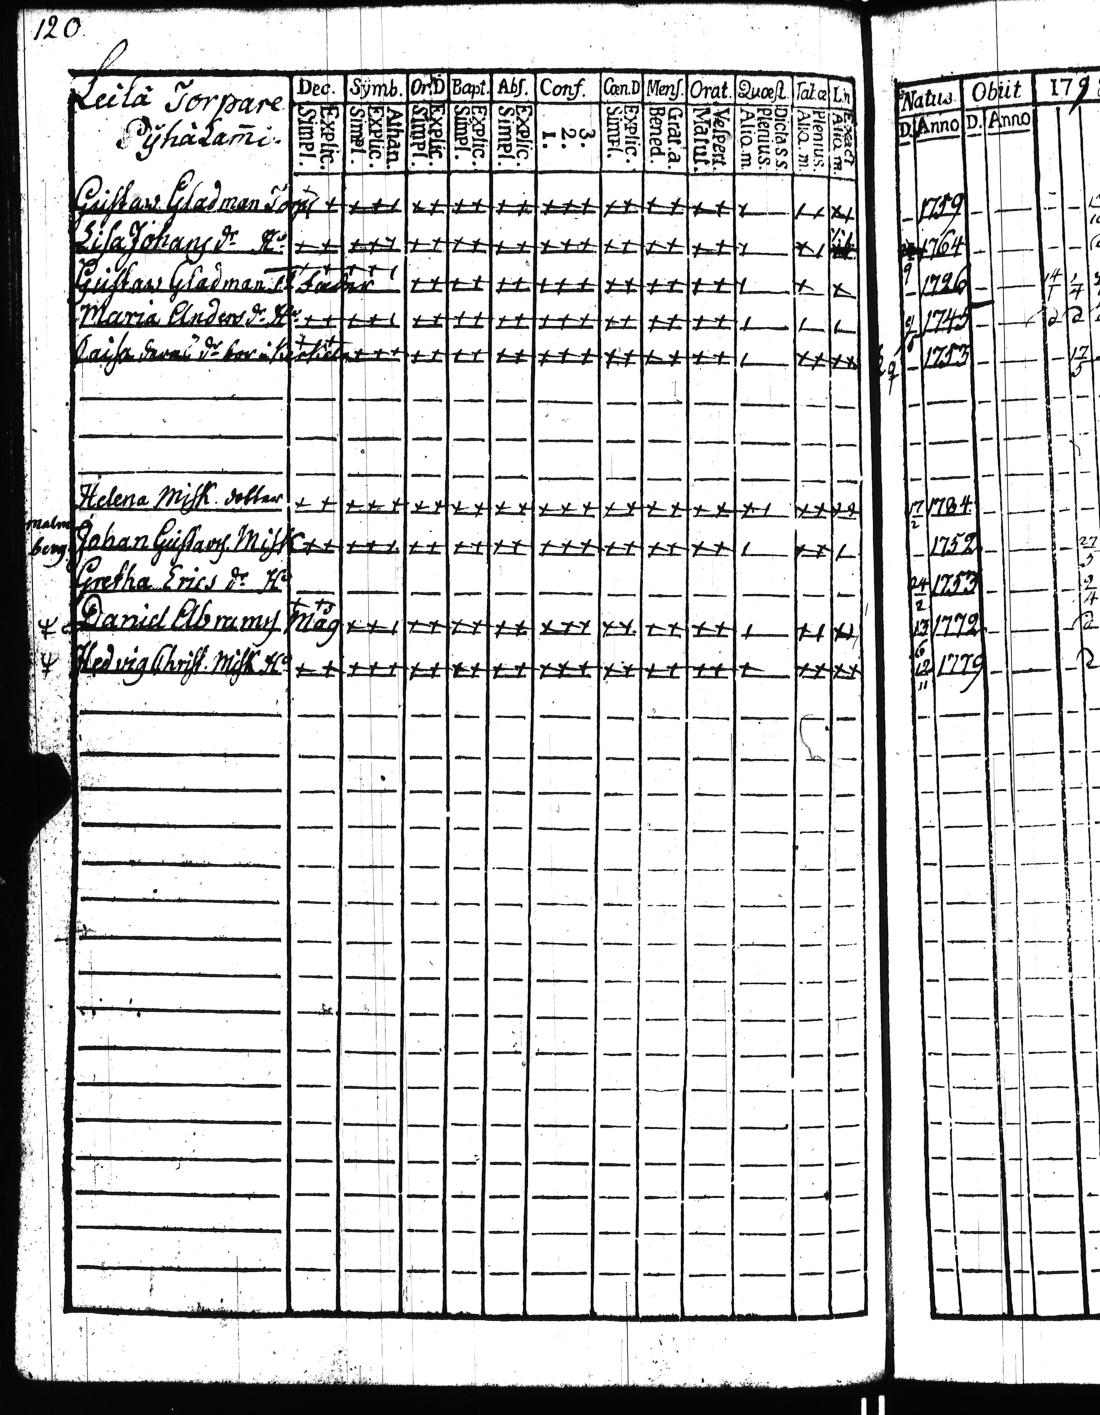 120
Leilä Torpare
Pyhälam̄i.
Dec. Symb. Or.D Bapt. Abs. Conf. Cœn.D Mens. Orat. Quœst.
Simpl. Explic. Simpl. Explic. Athan. Simpl. Explic. Simpl. Explic. Simpl. Explic. 1. 2. 3. Simpl. Explic. Bened. Grat.a. Matut. Vespert. Aliq.m. Plenius. Dicta S.S. Aliq.m. Plenius. Aliq.m. Exact
Natus. Obiit 179
D. Anno D. Anno
Gustaw Gladman Torp 1759
Lisa Johans dr Hu 1764
Gustaw Gladman 1726
Maria Anders dr Hu 1745
Caisa dr 1753 17/5
Helena Misk dotter 17/2 1784
Malm
berg
Johan Gustavs Misk 1752 27/5
Gretha Erics dr Hu 24/2 1753
Daniel Abrams Måg 13/6 1772
Hedvig Christ. Misk Hu 12/11 1779